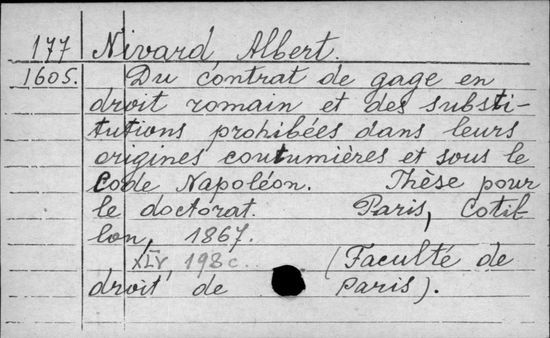 177 Nivard, Albert.
1605. Du contrat de gage en
droit romain et des substi-
tutions prohibées dans leurs
origines coutumières et sous le
Code Napoléon. Thèse pour
le doctorat. Paris, Cotil-
lon, 1867.
XLV, 198 c. (Faculté de
droit de Paris).